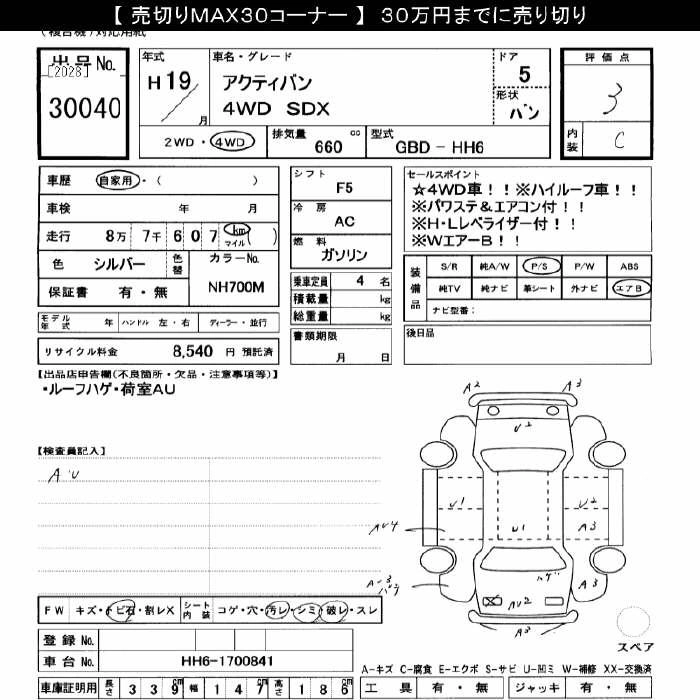 【 売切りMAX30コーナー 】 30万円までに売り切り
(複合機)対応用紙
出品No.
[2028]
30040
年式
H 19
月
車名・グレード
アクティバン
4WD SDX
ドア
5
形状
バン
評価点
3
内装
C
2WD・4WD
排気量
660
cc
型式
GBD - HH6
車歴 自家用・( )
車検 年 月
走行 8万 7千 6 0 7 km マイル ( )
色 シルバー 色替
カラーNo.
NH700M
保証書 有・無
モデル年式 年 ハンドル 左・右 ディーラー・並行
リサイクル料金 8,540 円 預託済
シフト
F5
冷房
AC
燃料
ガソリン
乗車定員 4 名
積載量 kg
総重量 kg
書類期限
月 日
セールスポイント
☆4WD車!!※ハイルーフ車!!
※パワステ&エアコン付!!
※H・Lレベライザー付!!
※WエアーB!!
装備品
S/R 純A/W P/S P/W ABS
純TV 純ナビ 革シート 外ナビ エアB
ナビ型番:
後日品
【出品店申告欄(不良箇所・欠品・注意事項等)】
・ルーフハゲ・荷室AU
【検査員記入】
AU
A2
A3
U2
U1
U1
U2
AU4
A3
A-3
ハゲ
A3
AU2
A3
スペア
FW キズ・トビ石・割レX
シート内装 コゲ・穴・汚レ・シミ・破レ・スレ
登録 No.
車台 No. HH6-1700841
車庫証明用 長さ 3 3 9 cm 幅 1 4 7 cm 高さ 1 8 6 cm
A-キズ C-腐食 E-エクボ S-サビ U-凹ミ W-補修 XX-交換済
工具 有・無 ジャッキ 有・無